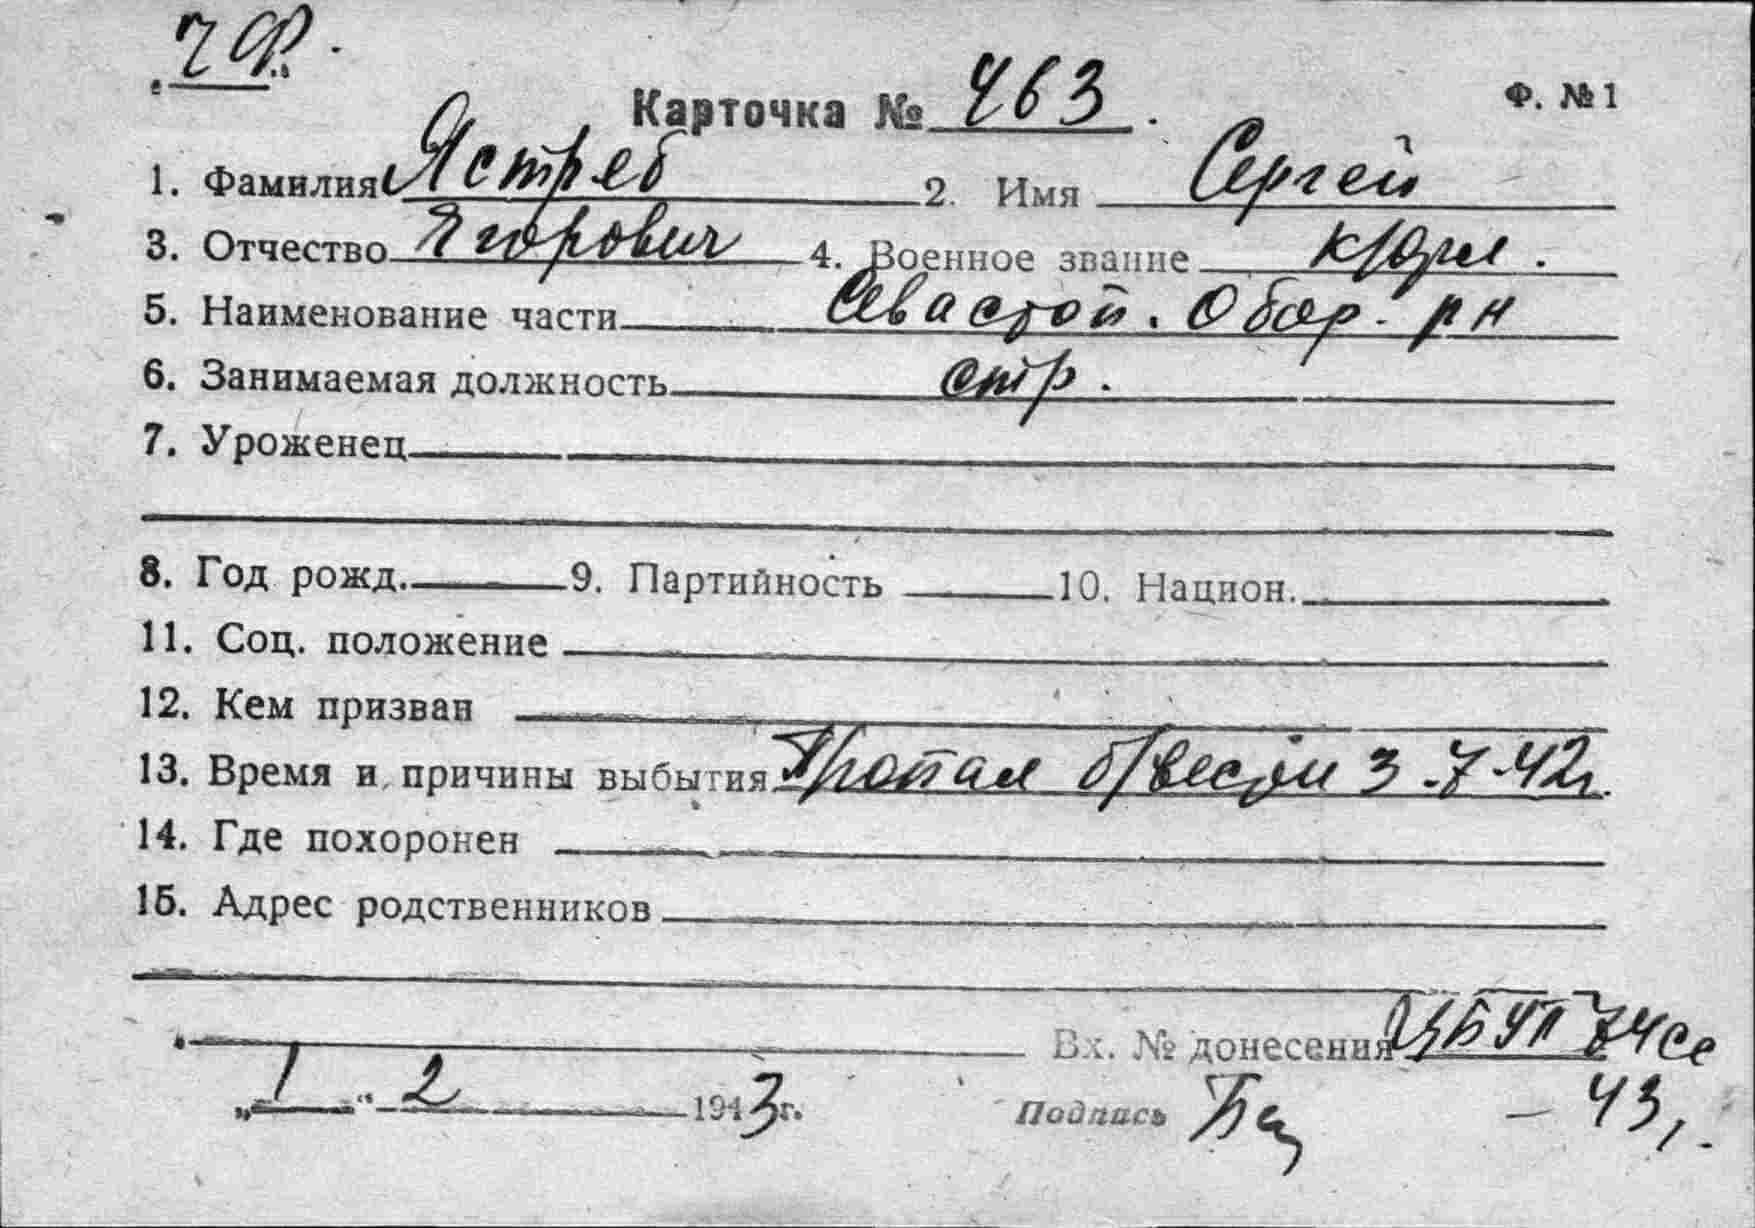 "ЧФ."
Карточка № 463. Ф. № 1
1. Фамилия Ястреб 2. Имя Сергей
3. Отчество Ягорович 4. Военное звание к/фл.
5. Наименование части Севастоп. Обор. рн
6. Занимаемая должность стр.
7. Уроженец
8. Год рожд. 9. Партийность 10. Национ.
11. Соц. положение
12. Кем призван
13. Время и причины выбытия Пропал б/вести 3.7.42г.
14. Где похоронен
15. Адрес родственников
Вх. № донесения ЦБУП 74сс
„1“ 2 1943г. Подпись – 43г.